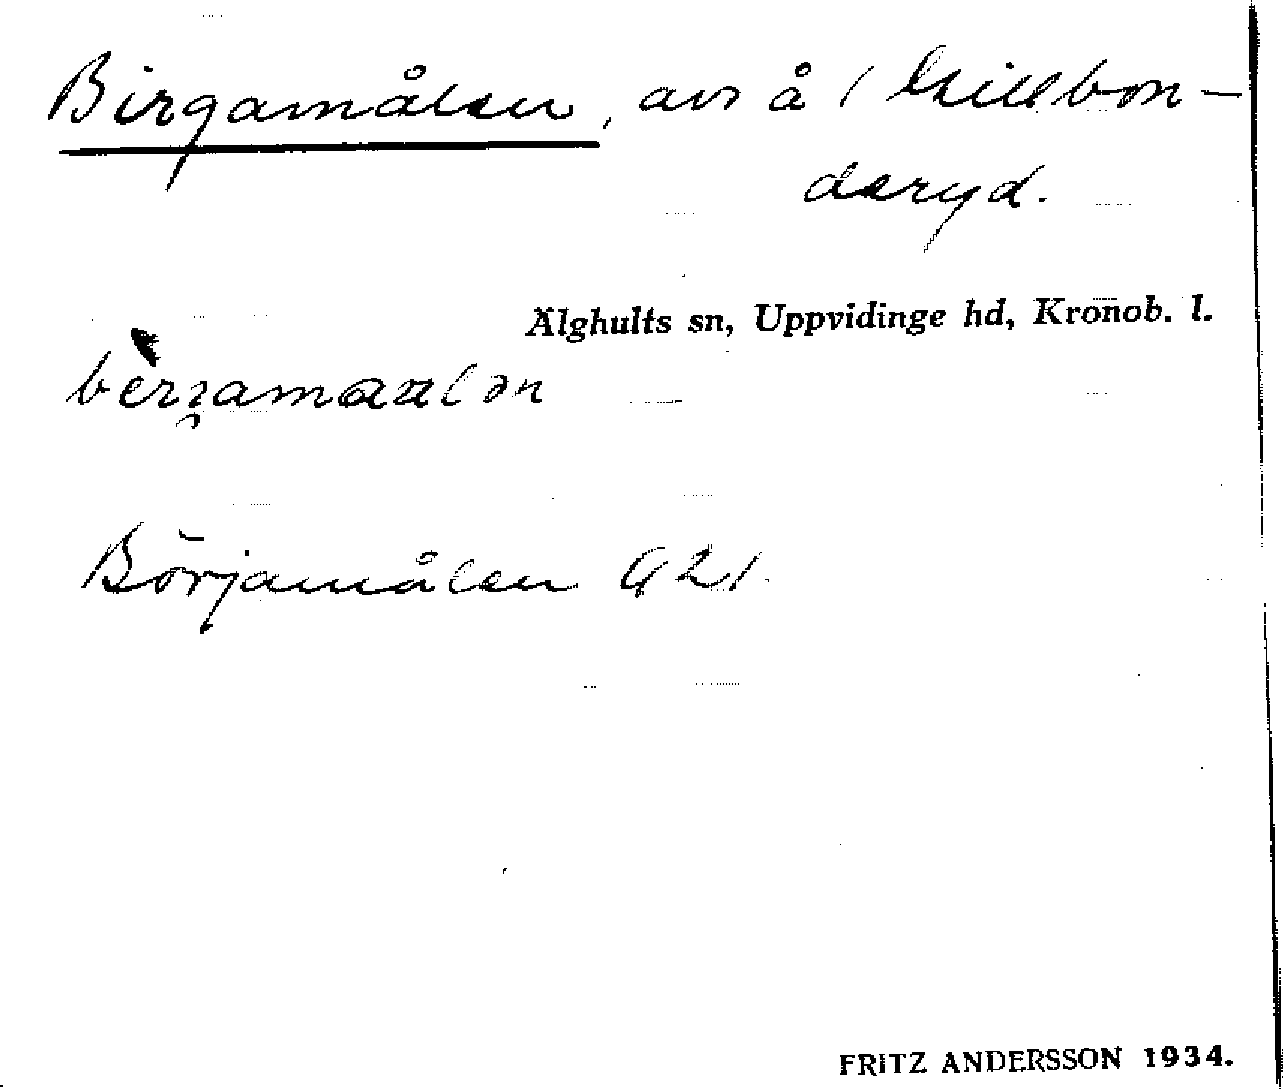 Birgamålen, avs å / Lillbon-
deryd.
Älghults sn, Uppvidinge hd, Kronob. l.
Börjamålen G 21
FRITZ ANDERSSON 1934.